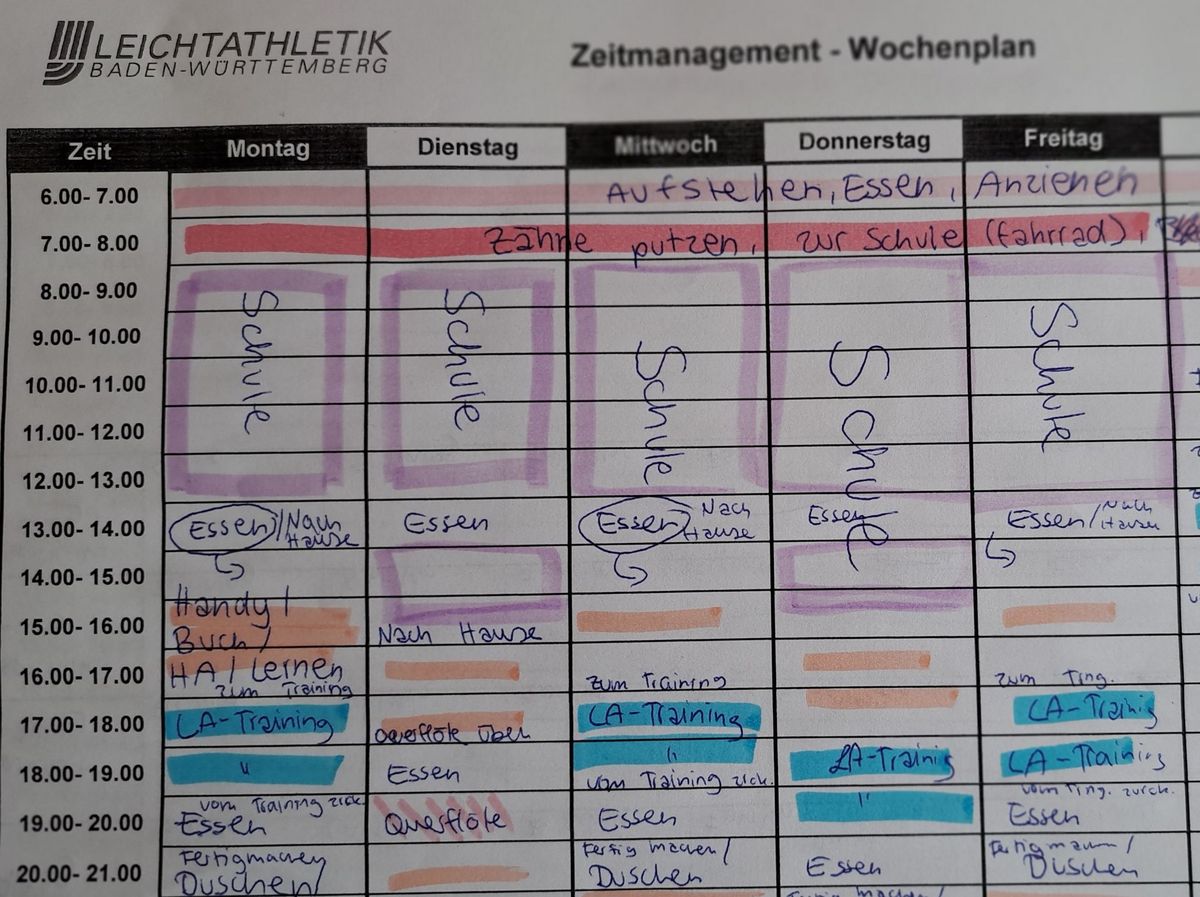 LEICHTATHLETIK
BADEN-WÜRTTEMBERG
Zeitmanagement - Wochenplan
Zeit Montag Dienstag Mittwoch Donnerstag Freitag
6.00- 7.00 Aufstehen, Essen, Anziehen
7.00- 8.00 Zähne putzen, zur Schule (Fahrrad),
8.00- 9.00
Schule Schule Schule Schule Schule
9.00- 10.00
10.00- 11.00
11.00- 12.00
12.00- 13.00
13.00- 14.00 Essen/Nach Hause Essen Essen Nach Hause Essen Essen/Nach Hause
14.00- 15.00
Handy/
15.00- 16.00 Buch/ Nach Hause
16.00- 17.00 HA/Lernen
zum Training zum Training zum Ting.
17.00- 18.00 LA-Training Querflöte üben LA-Training LA-Trainig
18.00- 19.00 " Essen " LA-Trainig LA-Trainig
vom Training zrck. vom Training zrck. vom Ting. zurck.
19.00- 20.00 Essen Querflöte Essen " Essen
20.00- 21.00 Fertigmachen Fertig machen/ Essen
Duschen/ Duschen Duschen